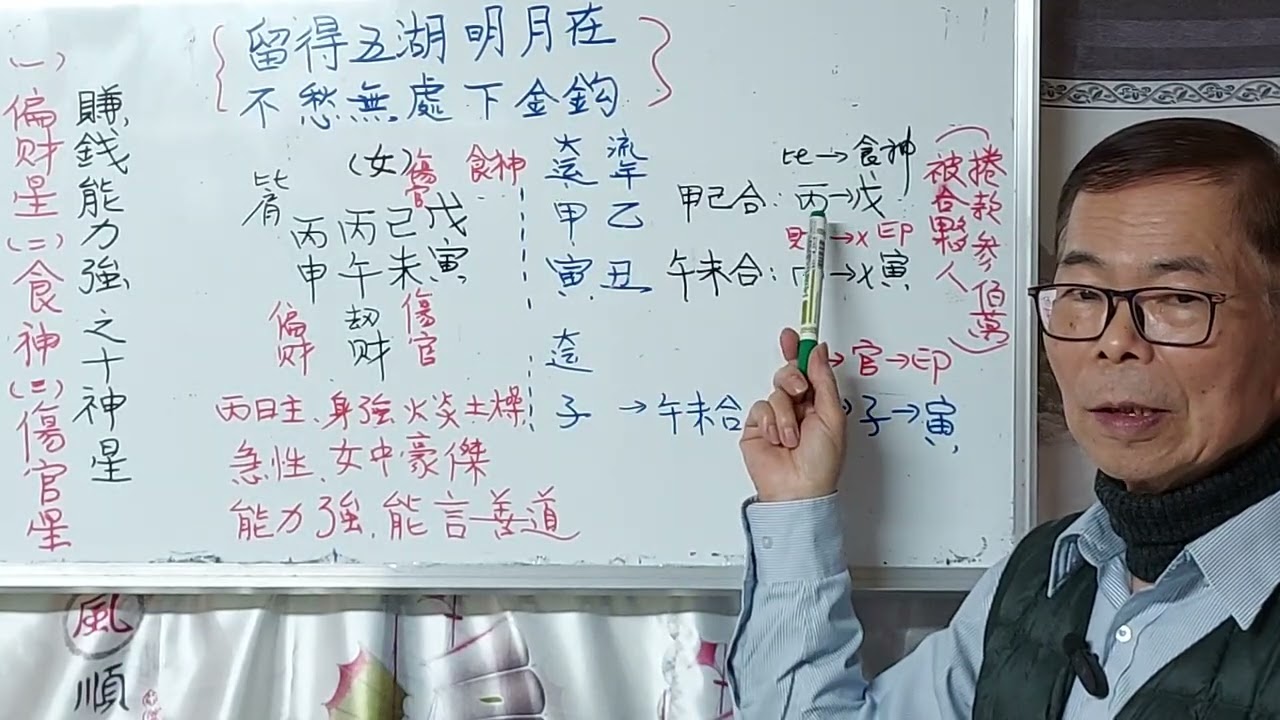 留得五湖明月在
不愁無處下金鈎
賺錢能力強之十神星
(一)偏財星(二)食神(三)傷官星
(女)
比肩
傷官
食神
丙丙己戊
申午未寅
偏財
劫財
傷官
大運 流年
甲 乙
寅 丑
大運
子→午未合
子→寅
比→食神
甲己合:丙→戊
→x印
午未合:
→x寅
→官→印
捲款參佰萬
被合夥人
丙日主、身強火炎土燥
急性、女中豪傑
能力強、能言善道
風
順